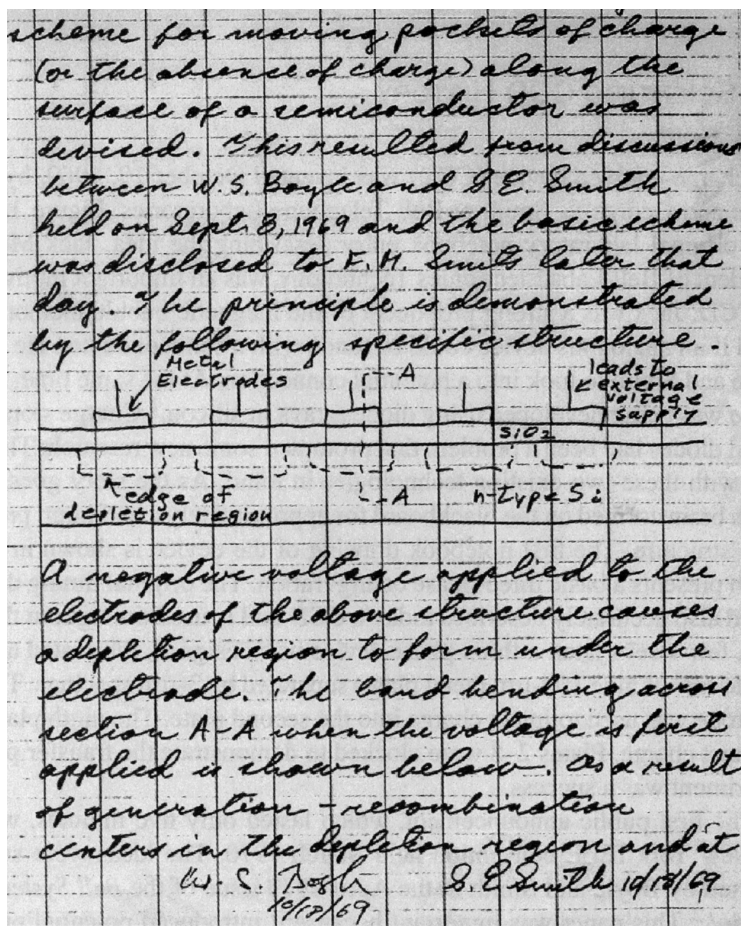 scheme for moving packets of charge
(or the absence of charge) along the
surface of a semiconductor was
devised. This resulted from discussions
between W.S. Boyle and G.E. Smith
held on Sept. 8, 1969 and the basic scheme
was disclosed to F.M. Smits later that
day. The principle is demonstrated
by the following specific structure.
Metal
Electrodes
A
leads to
external
voltage
supply
SiO2
edge of
depletion region
A
n-type Si
A negative voltage applied to the
electrodes of the above structure causes
a depletion region to form under the
electrode. The band bending across
section A-A when the voltage is first
applied is shown below. As a result
of generation - recombination
centers in the depletion region and at
W. S. Boyle
10/18/69
G. E. Smith 10/18/69